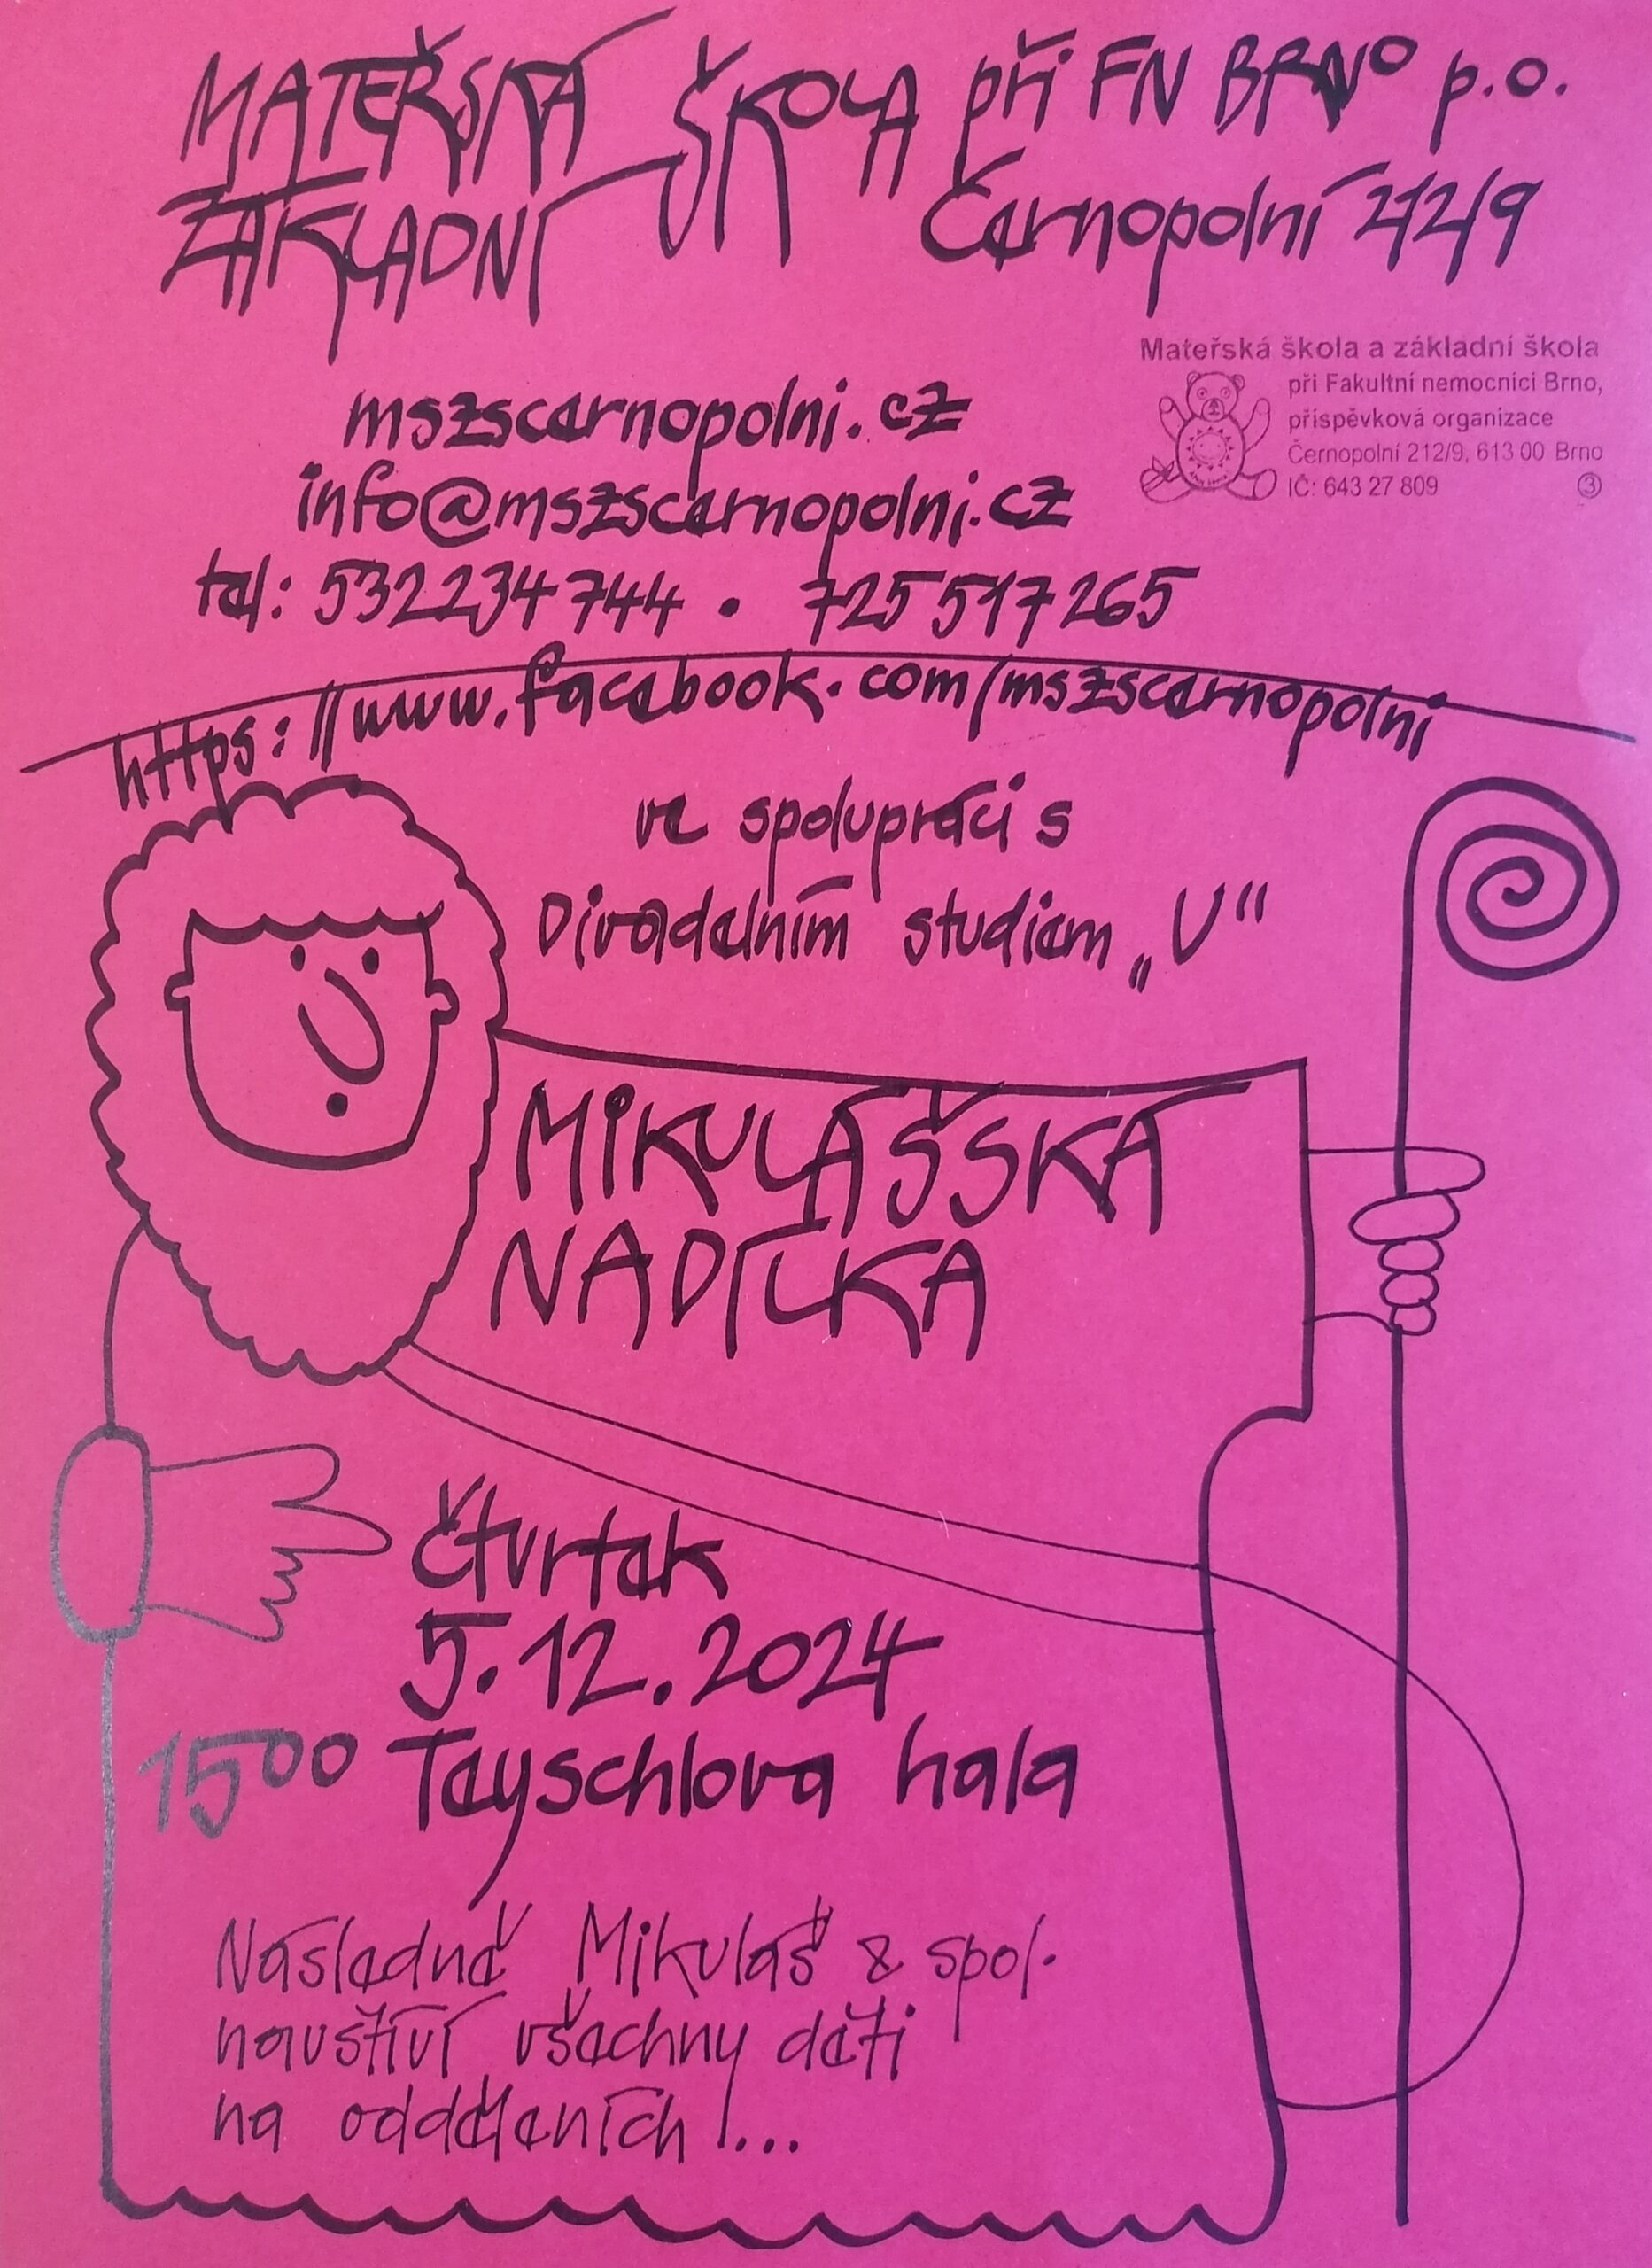 MATEŘSKÁ ŠKOLA při FN BRNO p.o.
ZÁKLADNÍ Černopolní 212/9
Mateřská škola a základní škola
při Fakultní nemocnici Brno,
příspěvková organizace
Černopolní 212/9, 613 00 Brno
IČ: 643 27 809 3
mszscernopolni.cz
info@mszscernopolni.cz
tel: 532234744 • 725517265
https://www.facebook.com/mszscernopolni
ve spolupráci s
Divadelním studiem „U“
MIKULÁŠSKÁ
NADÍLKA
Čtvrtek
5.12.2024
15⁰⁰ Teyschlova hala
Následně Mikuláš & spol.
navštíví všechny děti
na odděleních!...